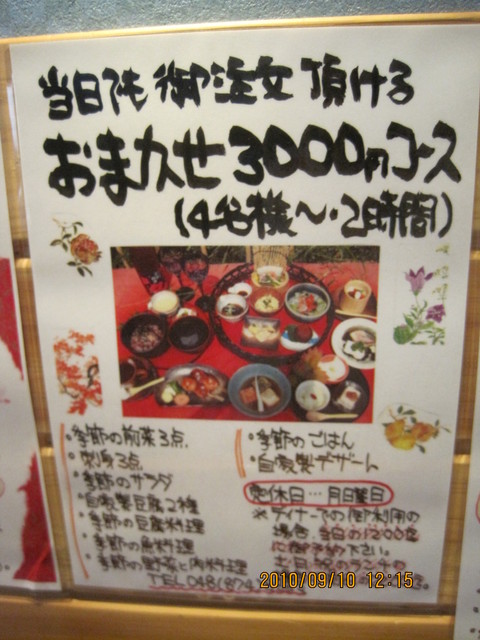 当日でも 御注文 頂ける
おまかせ 3000円コース
(4名様～・2時間)
・季節の前菜3点
・刺身3点
・季節のサラダ
・自家製豆腐2種
・季節の豆腐料理
・季節の魚料理
・季節の野菜と肉料理
・季節のごはん
・自家製デザート
定休日…月曜日
※ディナーでの御利用の
場合、当日の12:00迄
に御予約下さい。
TEL 048(874)
2010/09/10 12:15